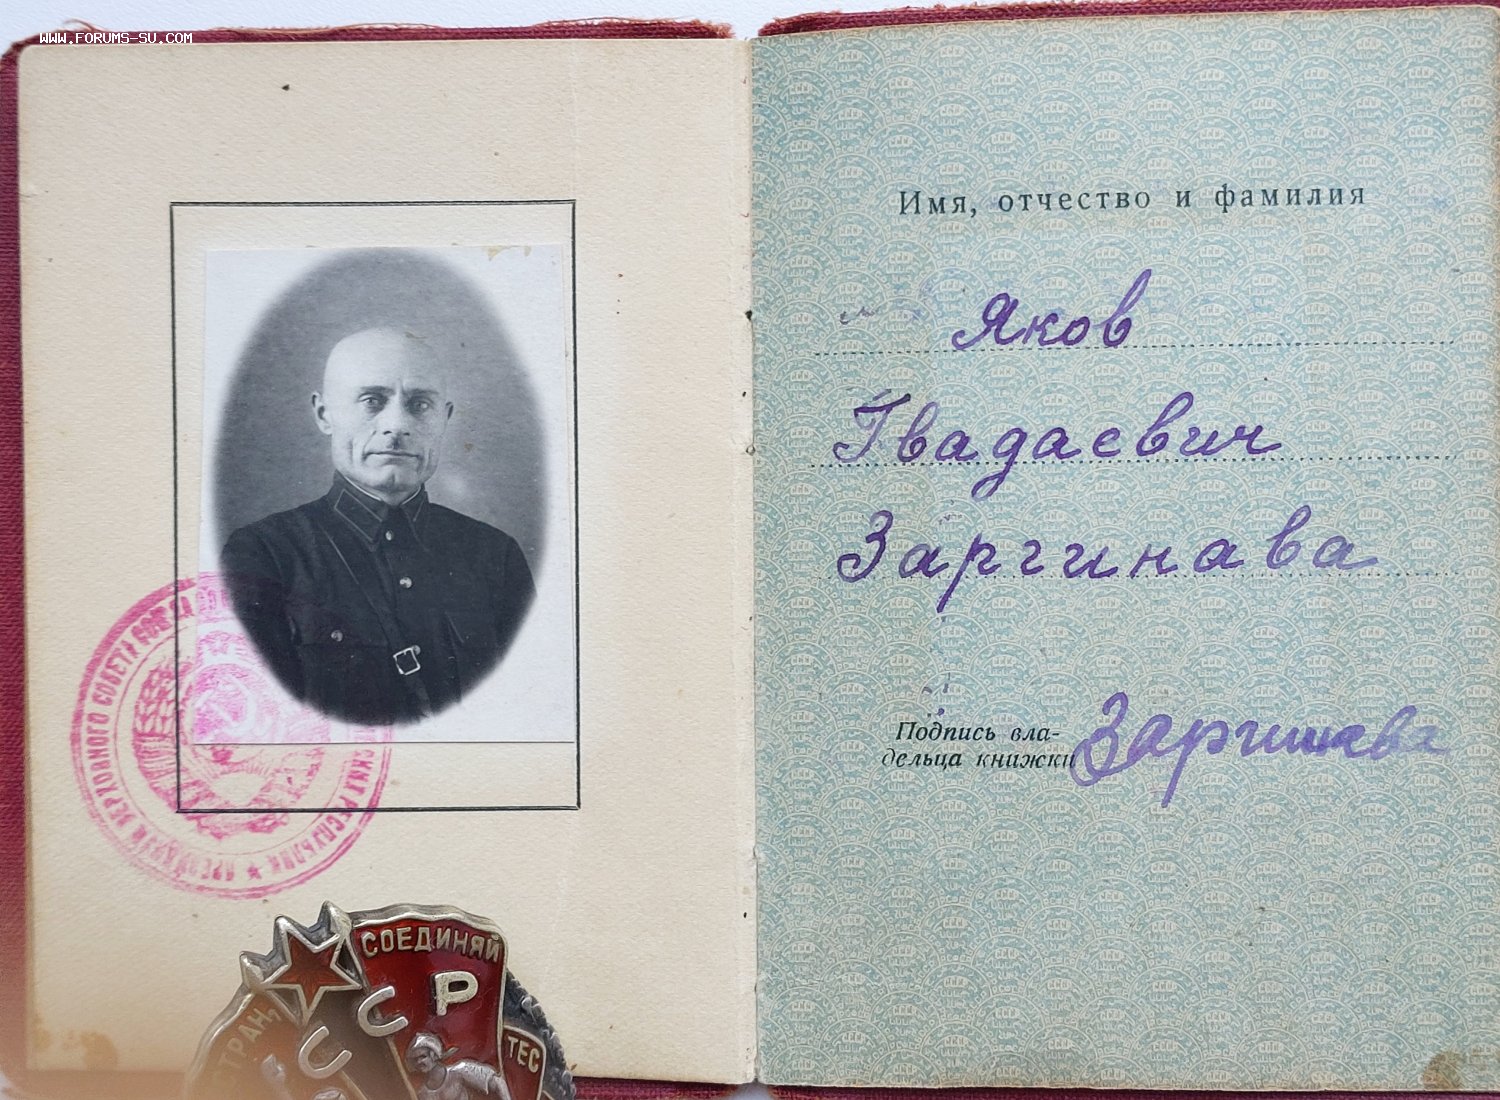 WWW.FORUMS-SU.COM
ПРЕЗИДИУМ ВЕРХОВНОГО СОВЕТА РЕСПУБЛИК
СОЕДИНЯЙ
СТРАН,
СССР
ТЕС
Имя, отчество и фамилия
Яков
Гвадаевич
Заргинава
Подпись вла-
дельца книжки Заргинава